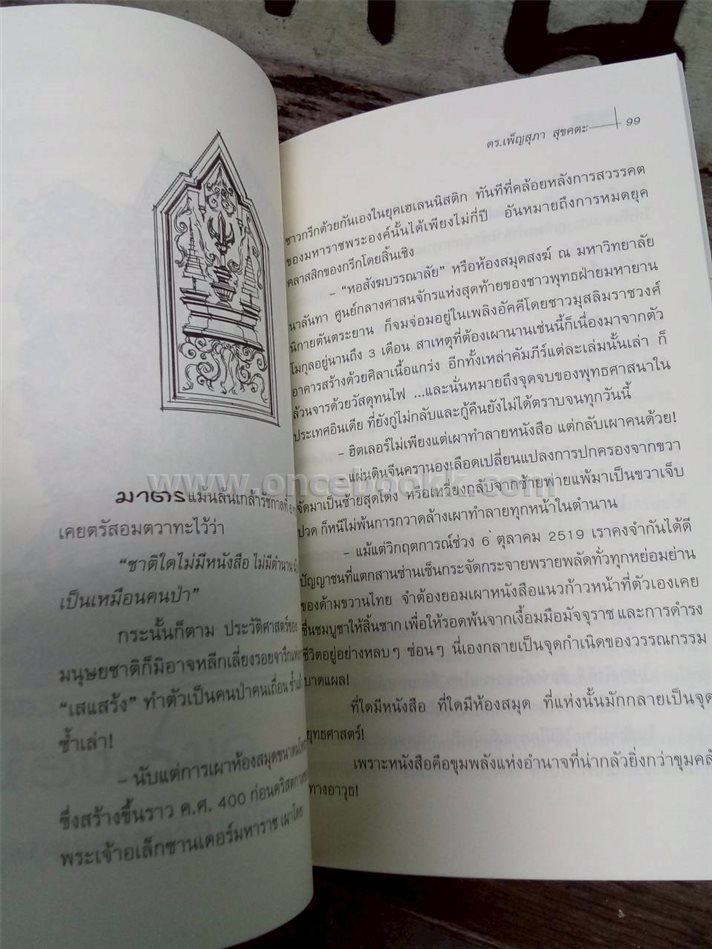 มาตรแม้นล้นเกล้ารัชกาลที่
เคยตรัสอมตวาทะไว้ว่า
“ชาติใดไม่มีหนังสือ ไม่มีตำนาน
เป็นเหมือนคนป่า”
กระนั้นก็ตาม ประวัติศาสตร์ของ
มนุษยชาติก็มิอาจหลีกเลี่ยงรอยจารึก
“เสแสร้ง” ทำตัวเป็นคนป่าคนเถื่อน
ซ้ำเล่า!
– นับแต่การเผาห้องสมุด
ซึ่งสร้างขึ้นราว ค.ศ. 400 ก่อนคริสตกาล
พระเจ้าอเล็กซานเดอร์มหาราช เผาโดย
ดร.เพ็ญสุภา สุขคตะ 99
ชาวกรีกด้วยกันเองในยุคเฮเลนนิสติก ทันทีที่คล้อยหลังการสวรรคต
ของมหาราชพระองค์นั้นได้เพียงไม่กี่ปี อันหมายถึงการหมดยุค
คลาสสิกของกรีกโดยสิ้นเชิง
– “หอสังฆบรรณาลัย” หรือห้องสมุดสงฆ์ ณ มหาวิทยาลัย
นาลันทา ศูนย์กลางศาสนจักรแห่งสุดท้ายของชาวพุทธฝ่ายมหายาน
นิกายตันตระยาน ก็จมจ่อมอยู่ในเพลิงอัคคีโดยชาวมุสลิมราชวงศ์
โมกุลอยู่นานถึง 3 เดือน สาเหตุที่ต้องเผานานเช่นนี้ก็เนื่องมาจากตัว
อาคารสร้างด้วยศิลาเนื้อแกร่ง อีกทั้งเหล่าคัมภีร์แต่ละเล่มนั้นเล่า ก็
ล้วนจารด้วยวัสดุทนไฟ ...และนั่นหมายถึงจุดจบของพุทธศาสนาใน
ประเทศอินเดีย ที่ยังกู่ไม่กลับและกู้คืนยังไม่ได้ตราบจนทุกวันนี้
– ฮิตเลอร์ไม่เพียงแต่เผาทำลายหนังสือ แต่กลับเผาคนด้วย!
– แผ่นดินจีนครานองเลือดเปลี่ยนแปลงการปกครองจากขวา
จัดมาเป็นซ้ายสุดโต่ง หรือเหวี่ยงกลับจากซ้ายพ่ายแพ้มาเป็นขวาเจ็บ
ปวด ก็หนีไม่พ้นการกวาดล้างเผาทำลายทุกหน้าในตำนาน
– แม้แต่วิกฤตการณ์ช่วง 6 ตุลาคม 2519 เราคงจำกันได้ดี
ปัญญาชนที่แตกสานซ่านเซ็นกระจัดกระจายพรายพลัดทั่วทุกหย่อมย่าน
ของด้ามขวานไทย จำต้องยอมเผาหนังสือแนวก้าวหน้าที่ตัวเองเคย
ชื่นชมบูชาให้สิ้นซาก เพื่อให้รอดพ้นจากเงื้อมมือมัจจุราช และการดำรง
ชีวิตอยู่อย่างหลบๆ ซ่อนๆ นี่เองกลายเป็นจุดกำเนิดของวรรณกรรม
บาดแผล!
ที่ใดมีหนังสือ ที่ใดมีห้องสมุด ที่แห่งนั้นมักกลายเป็นจุด
ยุทธศาสตร์!
เพราะหนังสือคือขุมพลังแห่งอำนาจที่น่ากลัวยิ่งกว่าขุมคลัง
ทางอาวุธ!